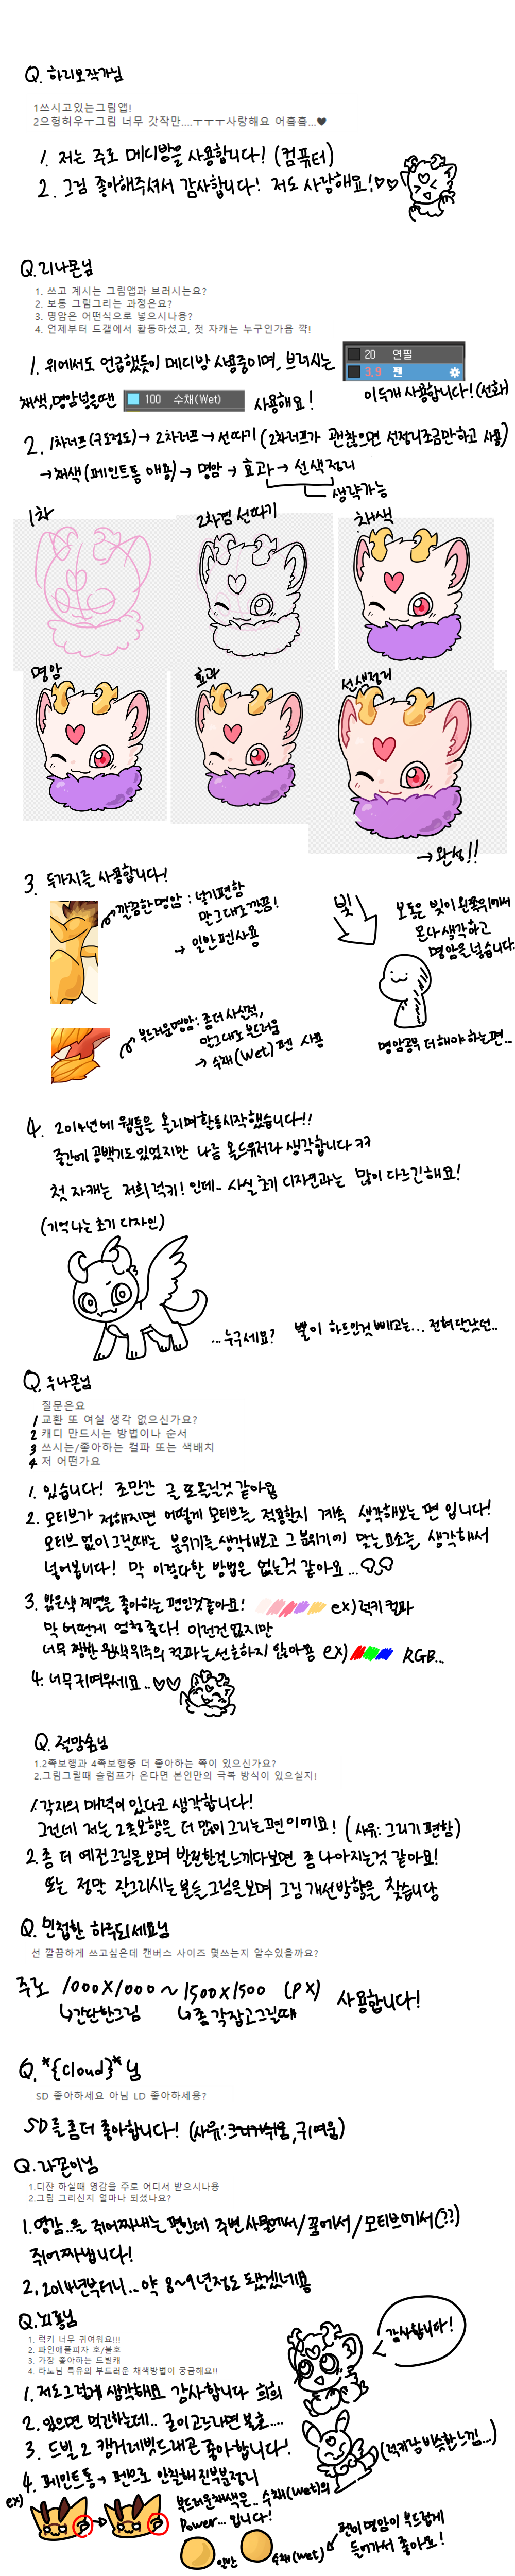 Q. 하리보작가님
1쓰시고있는그림앱!
2으헝허우ㅜ그림 너무 갓작만....ㅜㅜㅜ사랑해요 어흨흨...♥
1. 저는 주로 메디방을 사용합니다! (컴퓨터)
2. 그림 좋아해주셔서 감사합니다! 저도 사랑해요!♡♡
Q.리나몬님
1. 쓰고 계시는 그림앱과 브러시는요?
2. 보통 그림그리는 과정은요?
3. 명암은 어떤식으로 넣으시나용?
4. 언제부터 드갤에서 활동하셨고, 첫 자캐는 누구인가욤 꺅!
1. 위에서도 언급했듯이 메디방 사용중이며, 브러시는
20 연필
3.9 펜
채색,명암넣을땐
100 수채(Wet)
사용해요!
이두개 사용합니다!(선화)
2. 1차러프(구도정도)→ 2차러프 → 선따기 (2차러프가 괜찮으면 선정리조금만하고 사용)
→채색(페인트통 애용)→ 명암 → 효과→ 선색정리
생략가능
1차
2차겸 선따기
채색
명암
효과
선색정리
→완성!!
3. 두가지를 사용합니다!
깔끔한명암 : 넣기편함
말그대로깔끔!
→ 일반펜사용
빛
보통은 빛이 왼쪽위에서
온다 생각하고
명암을 넣습니다
부드러운명암: 좀더 사실적,
말그대로 부드러움
→ 수채(Wet) 펜 사용
명암공부 더해야 하는편...
4. 2014년에 웹툰을 올리며활동시작했습니다!!
중간에 공백기도 있었지만 나름 올드유저라 생각합니다 ㅋㅋ
첫 자캐는 저희 럭키! 인데.. 사실 초기 디자인과는 많이 다르긴해요!
(기억나는 초기 디자인)
... 누구세요? 뿔이 하트인것 빼고는... 전혀달랐던..
Q. 루나몬님
질문은요
1 교환 또 여실 생각 없으신가요?
2 캐디 만드시는 방법이나 순서
3 쓰시는/좋아하는 컬파 또는 색배치
4 저 어떤가요
1. 있습니다! 조만간 글 또올릴것 같아용
2. 모티브가 정해지면 어떻게 모티브를 적용할지 계속 생각해보는 편 입니다!
모티브 없이 그릴때는 분위기를 생각해보고 그 분위기에 맞는요소를 생각해서
넣어봅니다! 막 이렇다할 방법은 없는것 같아요...
3. 밝은색 계열을 좋아하는 편인것같아요! ex) 럭키 컬파
막 어떤게 엄청좋다! 이런건 없지만
너무 쨍한 원색위주의 컬파는 선호하지 않아용 ex) RGB...
4. 너무귀여우세요..♡♡
Q. 절망숨님
1.2족보행과 4족보행중 더 좋아하는 쪽이 있으신가요?
2.그림그릴때 슬럼프가 온다면 본인만의 극복 방식이 있으실지!
1.각자의 매력이 있다고 생각합니다!
그런데 저는 2족보행을 더 많이 그리는편 이에요! (사유: 그리기 편함)
2. 좀 더 예전그림을보며 발전한걸느끼다보면 좀 나아지는것 같아요!
또는 정말 잘그리시는분들 그림을보며 그림 개선방향을 찾습니답
Q. 민첩한 하루되세요님
선 깔끔하게 쓰고싶은데 캔버스 사이즈 몇쓰는지 알수있을까요?
주로 1000X1000 ~ 1500X1500 (PX) 사용합니다!
↳간단한그림 ↳좀 각잡고그릴때
Q.*{cloud}*님
SD 좋아하세요 아님 LD 좋아하세용?
SD를 좀더 좋아합니다! (사유: 그리기쉬움, 귀여움)
Q. 라꼰이님
1.디쟌 하실때 영감을 주로 어디서 받으시나용
2.그림 그리신지 얼마나 되셨나요?
1.영감..을 쥐어짜내는 편인데 주변 사물에서/꿈에서/모티브에서(??)
쥐어짜냅니다!
2. 2014년부터니... 약 8~9년정도 됐겠네욤
Q.뇌롱님
1. 럭키 너무 귀여워요!!!
2. 파인애플피자 호/불호
3. 가장 좋아하는 드빌캐
4. 라노님 특유의 부드러운 채색방법이 궁금해요!!
감사합니다!
1. 저도그렇게 생각해요 감사합니다 희희
2. 있으면 먹긴하는데.. 굳이고르라면 불호....
3. 드빌2 캠거레빗드래곤 좋아합니다!
(럭키랑 비슷한느낌...)
4. 페인트통 → 펜으로 안칠해진부분정리
ex)
부드러운채색은.. 수채(Wet)의
Power... 입니다!
일반
수채(wet)
펜이 명암이 부드럽게
들어가서 좋아요!